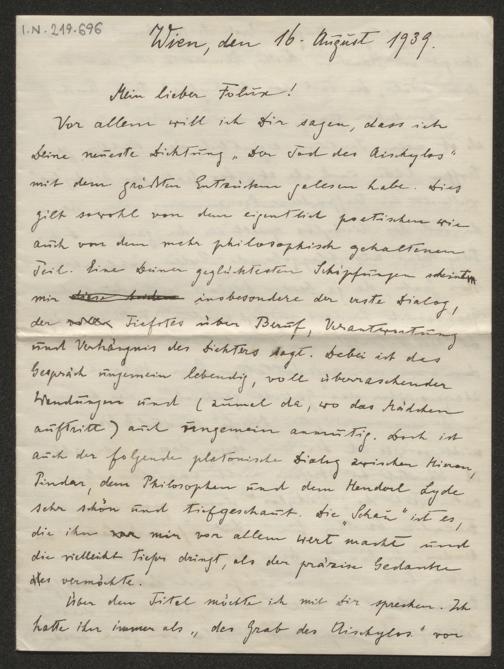 I.N. 219.696
Wien, den 16. August 1939.
Mein lieber Felix!
Vor allem will ich Dir sagen, dass ich
Deine neueste Dichtung „Der Tod des Aischylos"
mit dem größten Entzücken gelesen habe. Dies
gilt sowohl von dem eigentlich poetischen wie
auch von dem mehr philosophisch gehaltenen
Teil. Eine Deiner geglücktesten Schöpfungen scheint
mir insbesondere der erste Dialog,
der Tiefstes über Beruf, Verantwortung
und Verhängnis des Dichters sagt. Dabei ist das
Gespräch ungemein lebendig, voll überraschender
Wendungen und (zumal da, wo das Mädchen
auftritt) auch ungemein anmutig. Doch ist
auch der folgende platonische Dialog zwischen Hieron,
Pindar, dem Philosophen und dem Lyde
sehr schön und tiefgeschaut. Die „Schau" ist es,
die ihn mir vor allem wert macht und
die vielleicht tiefer dringt, als der präzise Gedanke
es vermöchte.
Über den Titel möchte ich mit Dir sprechen. Ich
hatte ihn immer als „das Grab des Aischylos" vor